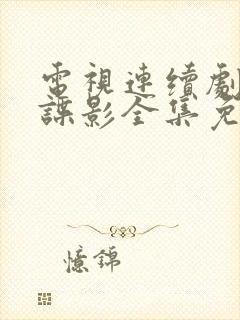 電視連續劇
諜影全集免
憶錦